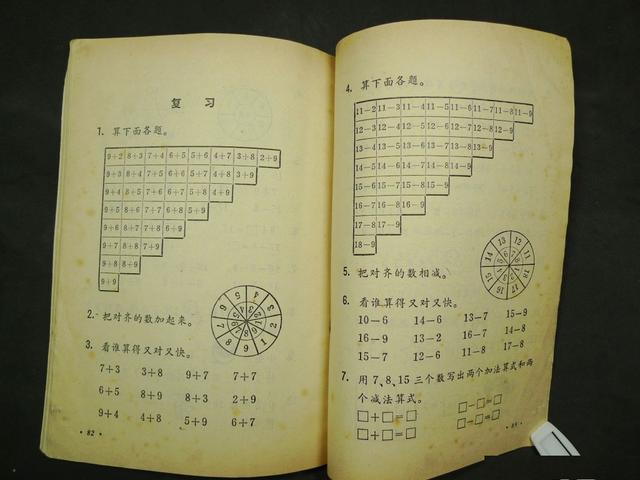 复 习
1. 算下面各题。
9+2 8+3 7+4 6+5 5+6 4+7 3+8 2+9
9+3 8+4 7+5 6+6 5+7 4+8 3+9
9+4 8+5 7+6 6+7 5+8 4+9
9+5 8+6 7+7 6+8 5+9
9+6 8+7 7+8 6+9
9+7 8+8 7+9
9+8 8+9
9+9
2. 把对齐的数加起来。
3. 看谁算得又对又快。
7+3 3+8 9+7 7+7
6+5 8+9 8+3 2+9
9+4 4+8 5+9 6+7
· 82 ·
4. 算下面各题。
11-2 11-3 11-4 11-5 11-6 11-7 11-8 11-9
12-3 12-4 12-5 12-6 12-7 12-8 12-9
13-4 13-5 13-6 13-7 13-8 13-9
14-5 14-6 14-7 14-8 14-9
15-6 15-7 15-8 15-9
16-7 16-8 16-9
17-8 17-9
18-9
5. 把对齐的数相减。
6. 看谁算得又对又快。
10-6 14-6 13-7 15-9
16-9 13-2 16-7 14-8
15-7 12-6 11-8 17-8
7. 用 7、8、15 三个数写出两个加法算式和两
个减法算式。
□+□=□ □-□=□
□+□=□ □-□=□